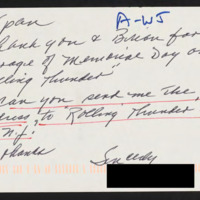 A-WJ
span
hank you & Brian for
rage of Memorial Day on
lling Thunder"
an you send me the
ress, to "Rolling Thunder
N.J."
Thanks
Sincerely